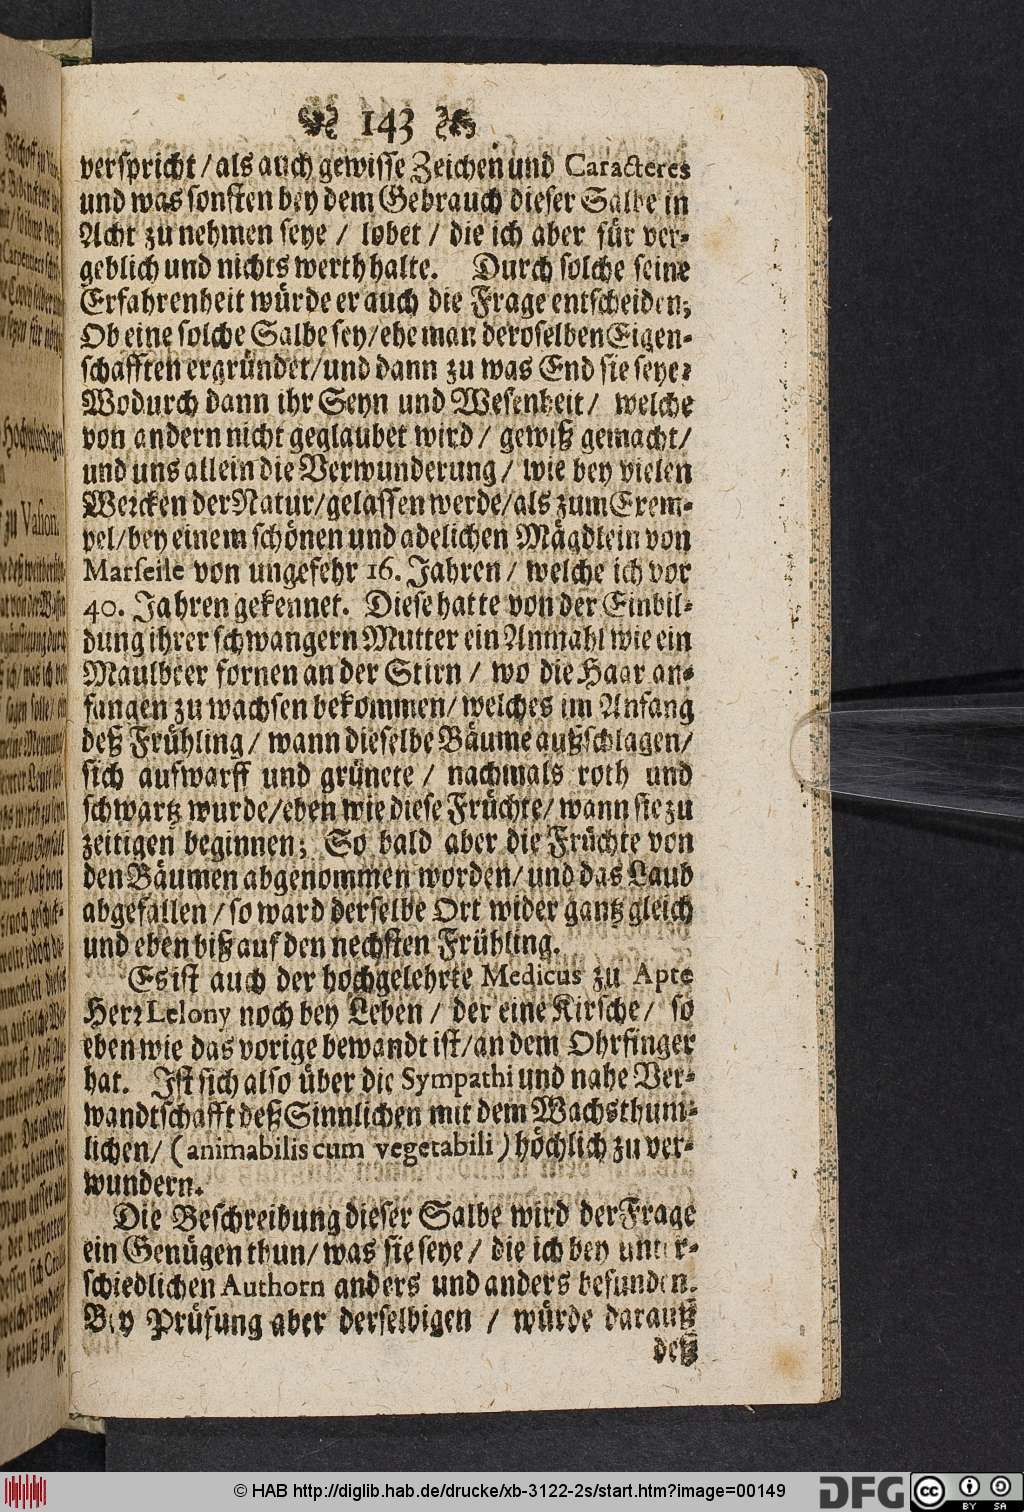 143
verspricht / als auch gewisse Zeichen und Caracteres
und was sonsten bey dem Gebrauch dieser Salbe in
Acht zu nehmen seye / lobet / die ich aber für ver-
geblich und nichts werth halte. Durch solche seine
Erfahrenheit würde er auch die Frage entscheiden;
Ob eine solche Salbe sey/ehe man deroselben Eigen-
schafften ergründet/und dann zu was End sie seye?
Wodurch dann ihr Seyn und Wesenheit / welche
von andern nicht geglaubet wird / gewiß gemacht/
und uns allein die Verwunderung / wie bey vielen
Wercken der Natur/gelassen werde/als zum Exem-
pel/bey einem schönen und adelichen Mägdlein von
Marseile von ungefehr 16. Jahren / welche ich vor
40. Jahren gekennet. Diese hatte von der Einbil-
dung ihrer schwangern Mutter ein Anmahl wie ein
Maulbeer fornen an der Stirn / wo die Haar an-
fangen zu wachsen bekommen/welches im Anfang
deß Frühling / wann dieselbe Bäume außschlagen/
sich aufwarff und grünete / nachmals roth und
schwartz wurde/eben wie diese Früchte/wann sie zu
zeitigen beginnen; So bald aber die Früchte von
den Bäumen abgenommen worden/und das Laub
abgefallen / so ward derselbe Ort wider gantz gleich
und eben biß auf den nechsten Frühling.
Es ist auch der hochgelehrte Medicus zu Apte
Herr Lelony noch bey Leben / der eine Kirsche / so
eben wie das vorige bewandt ist/an dem Ohrfinger
hat. Ist sich also über die Sympathi und nahe Ver-
wandtschafft deß Sinnlichen mit dem Wachsthum-
lichen/ (animabilis cum vegetabili) höchlich zu ver-
wundern.
Die Beschreibung dieser Salbe wird der Frage
ein Genügen thun/was sie seye / die ich bey unter-
schiedlichen Authorn anders und anders befunden.
Bey Prüfung aber derselbigen / würde darauß
deß
© HAB http://diglib.hab.de/drucke/xb-3122-2s/start.htm?image=00149
DFG
cc
BY SA